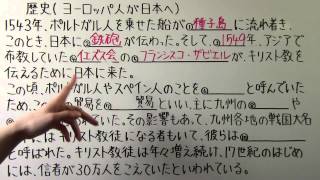 歴史(ヨーロッパ人が日本へ)
1543年、ポルトガル人を乗せた船が@種子島に流れ着き、
このとき、日本に@鉄砲が伝わった。そして、@1549年、アジアで
布教していた@イエズス会の@フランシスコ・ザビエルが、キリスト教を
伝えるために日本に来た。
この頃、ポルトガル人やスペイン人のことを@ と呼んでいた
ため、この 貿易を@ 貿易といい、主に九州の@ や
@ ていた。その影響もあって、九州各地の戦国大名
キリスト教徒になる者もいて、彼らは@
と呼ばれた。キリスト教徒は年々増え続け、17世紀のはじめ
には、信者が30万人をこえていたといわれている。